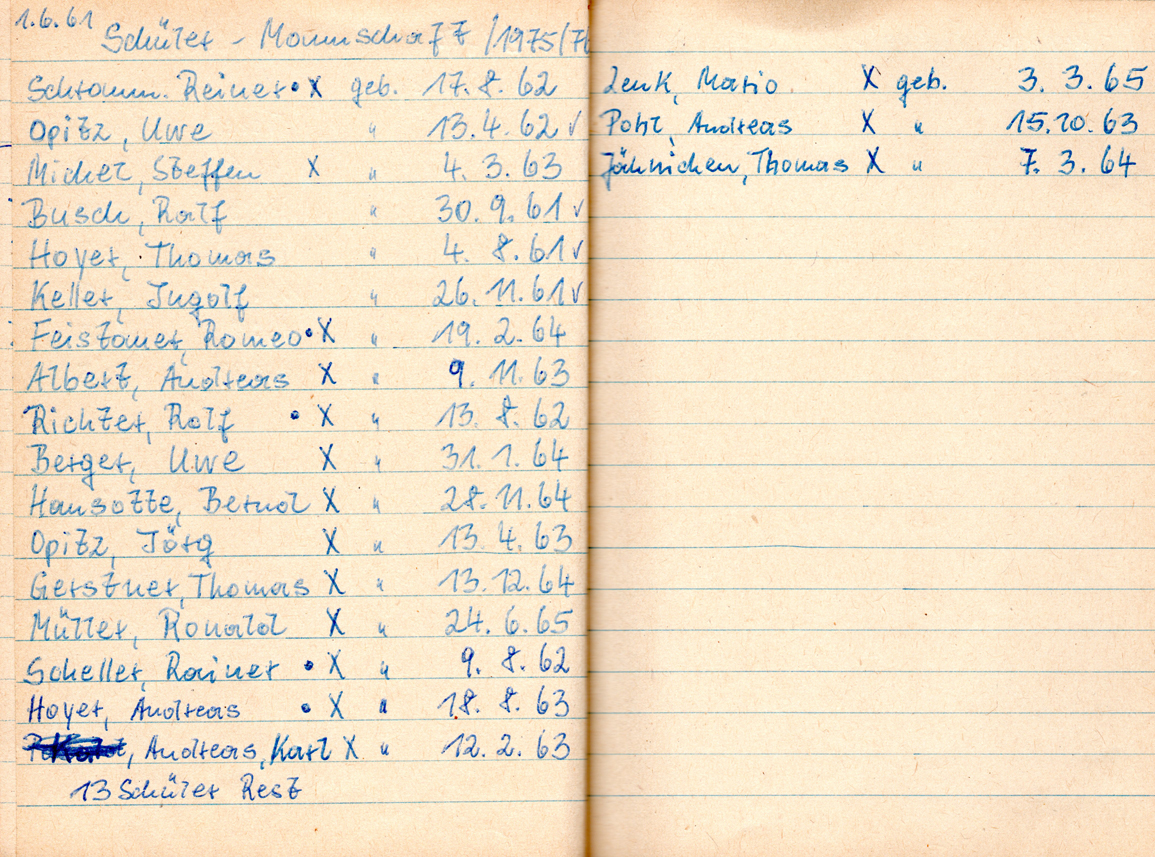 1.6.61
Schüler - Mannschaft /1975/76
Schramm. Reiner • X geb. 17.8.62
Opitz, Uwe " 13.4.62 ✓
Michel, Steffen X " 4.3.63
Busch, Ralf " 30.9.61 ✓
Hoyer, Thomas " 4.8.61 ✓
Keller, Ingolf " 26.11.61 ✓
Feistauer, Romeo • X " 19.2.64
Albert, Andreas X " 9.11.63
Richter, Rolf • X " 13.8.62
Berger, Uwe X " 31.1.64
Hansotte, Bernd X " 28.11.64
Opitz, Jörg X " 13.4.63
Gerstner, Thomas X " 13.12.64
Müller, Ronald X " 24.6.65
Scheller, Rainer • X " 9.8.62
Hoyer, Andreas • X " 18.8.63
, Andreas, Karl X " 12.2.63
13 Schüler Rest
Zenk, Mario X geb. 3.3.65
Pohl, Andreas X " 15.10.63
Jähnichen, Thomas X " 7.3.64